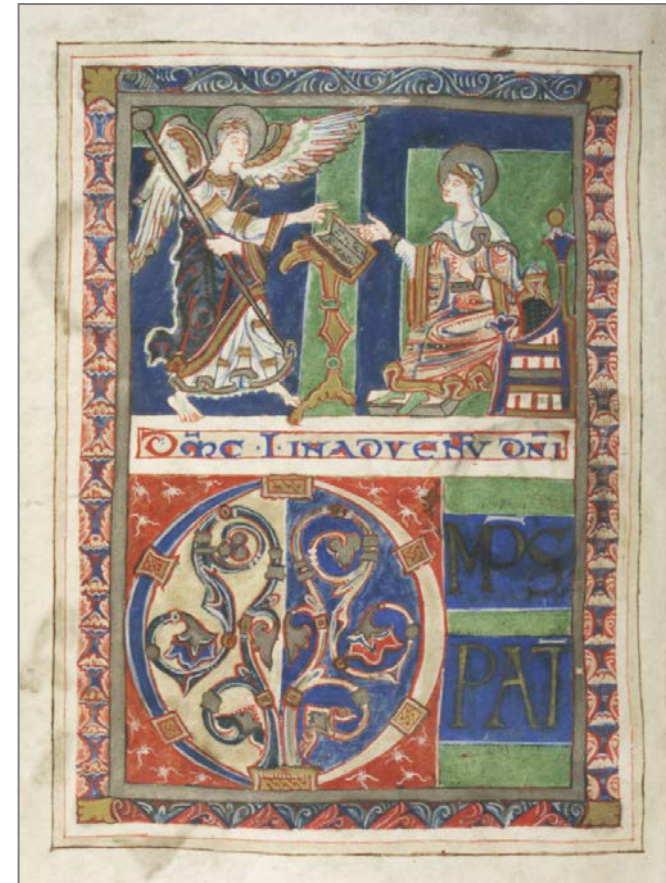 DM̄C · I · IN ADVENTV DN̄I
O MP̄S
PAT̄